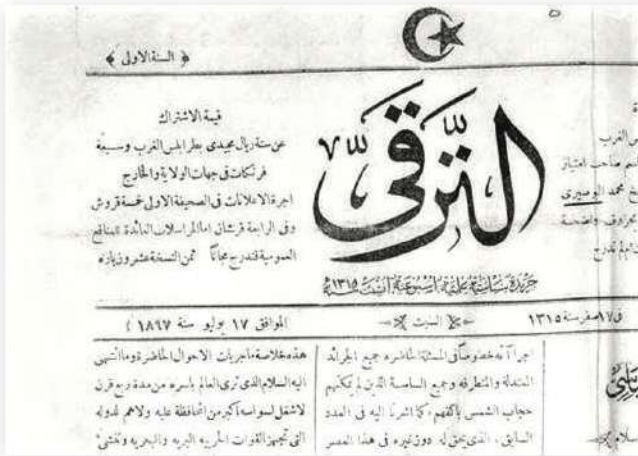 ﴿ السنة الاولى ﴾
قيمة الاشتراك
عن سنة ريال مجيدى بطرابلس الغرب وسبعة
فرنكات فى جهات الولاية والخارج
اجرة الاعلانات فى الصحيفة الاولى خمسة قروش
وفى الرابعة قرشان اما المراسلات العائدة للمنافع
العمومية فتدرج مجاناً ثمن النسخة عشرون بازه
الترقى
جريدة سياسية علمية اسبوعية انشئت سنة ١٣١٥
س الغرب
صاحب امتياز
محمد البوصيرى
فى ١٧ صفر سنة ١٣١٥
السبت
الموافق ١٧ يوليو سنة ١٨٩٧
اجرا آته خصوصاً فى المسئلة الحاضره جميع الجرائد
المعتدلة والمتطرفه وجميع الساسة الذين لم يمكنهم
حجاب الشمس باكفهم، كما اشرنا اليه فى العدد
السابق، الذى يحق له دون غيره فى هذا العصر
هذه خلاصة ماجريات الاحوال الحاضرة وما انتهى
اليه السلام الذى ترى العالم باسره من مدة ربع قرن
لا شغل لسواسه اكبر من المحافظة عليه ولا هم لدوله
التى تجهز القوات الحربيه البريه والبحريه وتفنى